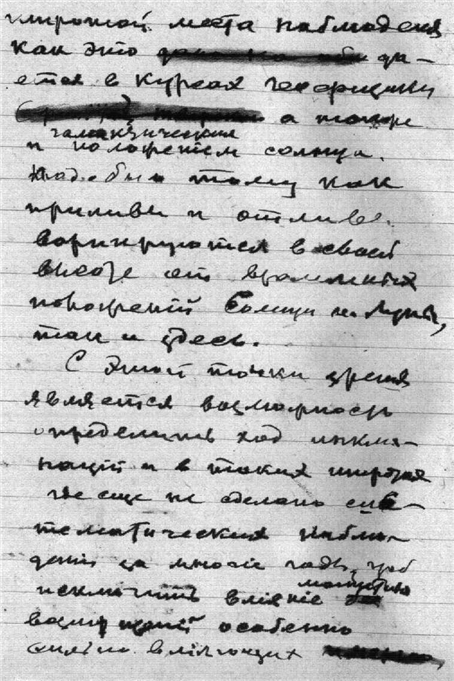 широтой места наблюденія
как это да-
ется в курсах геофизики
а также
галактическим
и положением солнца.
Подобно тому как
приливы и отливы
варіируются в своей
высоте от взаимных
положеній Солнца и Луны,
так и здесь.
С этой точки зренія
является возможность
определить ход инкли-
націй и в таких широтах
где еще не сделано сис-
тематических наблю-
деній за многіе годы, чтоб
исключить вліяніе магнитных
возмущеній особенно
сильно вліяющих